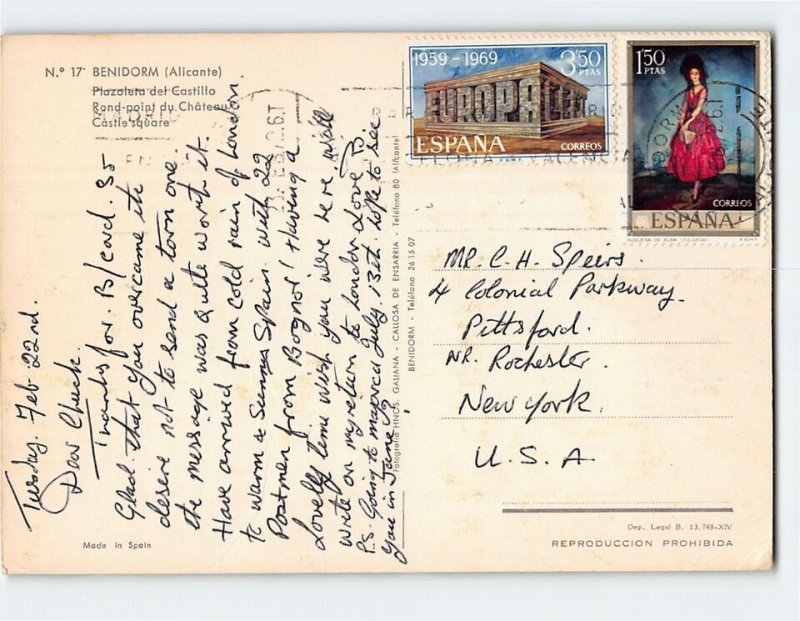 N.º 17 BENIDORM (Alicante)
Plazoleta del Castillo
Rond-point du Château
Castle square
Tuesday. Feb. 22nd.
Dear Chuck.
Thanks for B/card. So
Glad that you overcame the
desire not to send a torn one.
the message was quite worth it.
Have arrived from cold rain of London.
to warm & Sunny Spain. With 22
Postmen from Bognor! Having a
Lovely time wish you were here. Will
Write on my return to London Love
P.S. Going to majorca July 13st. hope to see
you in June
Made in Spain
Fotografía HNOS. GALIANA - CALLOSA DE ENSARRIA - Teléfono 80 (Alicante)
BENIDORM - Teléfono 36 15 07
1959 - 1969
3'50
PTAS
EUROPA CEPT
ESPAÑA
CORREOS
1'50
PTAS
CORREOS
ESPAÑA
DUQUESA DE ALBA (ZULOAGA)
F.N.M.T.
Mr. C. H. Speirs.
4 Colonial Parkway.
Pittsford.
NR. Rochester.
New York.
U.S.A
Dep. Legal B. 13.749-XIV
REPRODUCCION PROHIBIDA